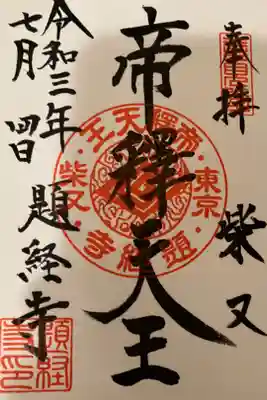 奉拝 柴又
帝釋天王
令和三年
七月四日
題経寺
帝釋天王
東京
題經寺
柴又
題経寺印